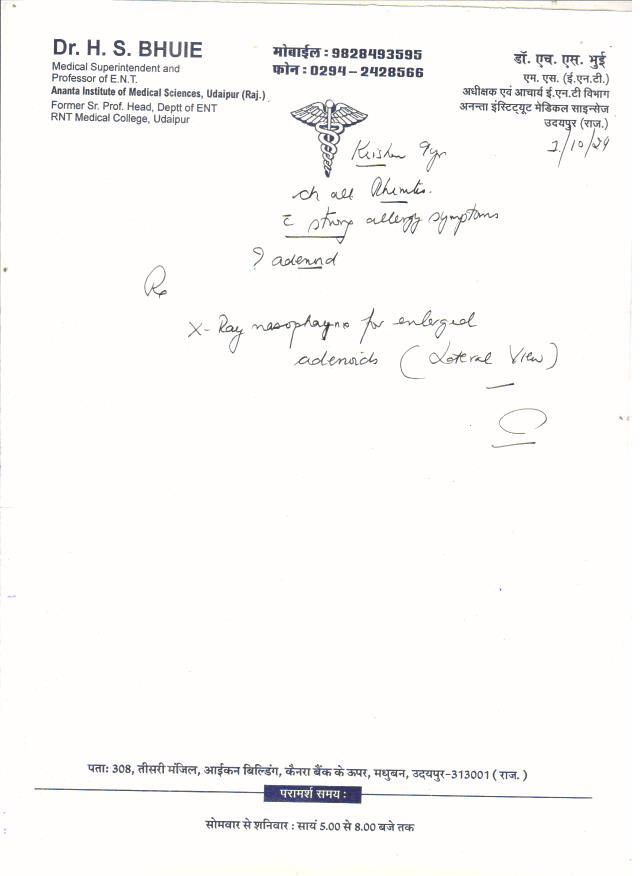 Dr. H. S. BHUIE
Medical Superintendent and
Professor of E.N.T.
Ananta Institute of Medical Sciences, Udaipur (Raj.)
Former Sr. Prof. Head, Deptt of ENT
RNT Medical College, Udaipur
मोबाईल : 9828493595
फोन : 0294 – 2428566
डॉ. एच. एस. भुई
एम. एस. (ई.एन.टी.)
अधीक्षक एवं आचार्य ई.एन.टी विभाग
अनन्ता इंस्टिट्यूट मेडिकल साइन्सेज
उदयपुर (राज.)
/10/24
9yr
ch all Rhinitis.
c̄ strong allergy symptoms
? adenoid
Rx
X-Ray nasopharynx for enlarged
adenoids (Lateral View)
पताः 308, तीसरी मंजिल, आईकन बिल्डिंग, कैनरा बैंक के ऊपर, मधुबन, उदयपुर–313001 ( राज. )
परामर्श समय :
सोमवार से शनिवार : सायं 5.00 से 8.00 बजे तक